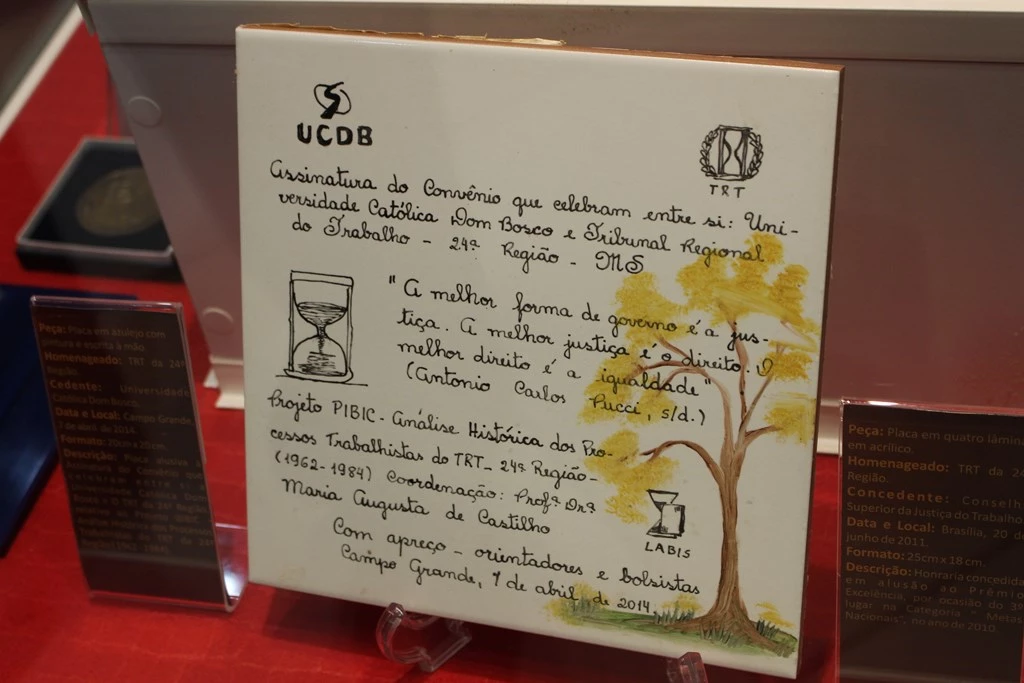 UCDB
TRT
Assinatura do Convênio que celebram entre si: Uni-
versidade Católica Dom Bosco e Tribunal Regional
do Trabalho - 24ª Região - MS
"A melhor forma de governo é a jus-
tiça. A melhor justiça é o direito. O
melhor direito é a igualdade"
(Antonio Carlos Pucci, s/d.)
Projeto PIBIC - Análise Histórica dos Pro-
cessos Trabalhistas do TRT - 24ª Região -
(1962-1984) Coordenação: Profª Drª
Maria Augusta de Castilho
LABIS
Com apreço - orientadores e bolsistas
Campo Grande, 1 de abril de 2014
Peça: Placa em azulejo com
pintura e escrita à mão.
Homenageado: TRT da 24ª
Região.
Cedente: Universidade
Católica Dom Bosco.
Data e Local: Campo Grande,
de abril de 2014.
Formato: 20cm x 20cm.
Descrição: Placa alusiva à
Peça: Placa em quatro lâmina
em acrílico.
Homenageado: TRT da 24
Região.
Concedente: Conselh
Superior da Justiça do Trabalho
Data e Local: Brasília, 20 de
junho de 2011.
Formato: 25cm x 18 cm.
Descrição: Honraria concedida
em alusão ao Prêmio
Excelência, por ocasião do 3º
lugar na Categoria " Metas
Nacionais", no ano de 2010